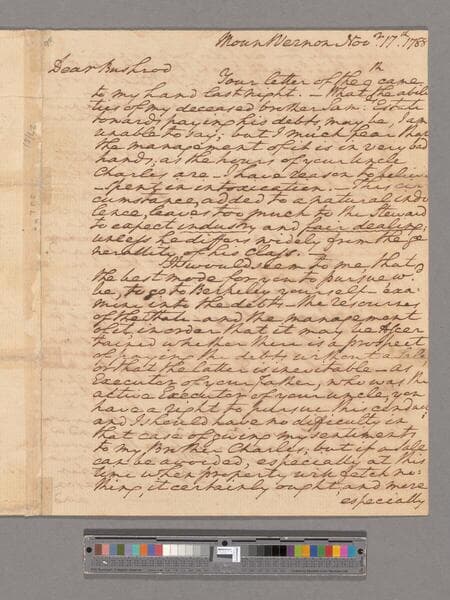 Mount Vernon Nov.r 17.th 1788
Dear Bushrod
Your letter of the 9th came
to my hand last night. – What the abili
ties of my deceased brother Sam: Estate
towards paying his debts, may be, I am
unable to say; but I much fear that
the management of it is in very bad
hands; as the hours of your Uncle
Charles are – I have reason to believe
– spent in intoxication. – This cir
cumstance, added to a natural indo
lence, leaves too much to the Steward
to expect industry and fair dealing;
unless he differs widely from the ge
nerality of his Class. –
It would seem to me, that
the best mode for you to pursue w.d
be, to go to Berkeley yourself – exa
mine into the debts – the resources
of the Estate – and the management
of it, in order that it may be ascer
tained whether there is a prospect
of paying the debts without a Sale
or that the latter is inevitable – as
Executor of your father, who was the
active Executor of your uncle, you
have a right to pursue this conduct
and I should have no difficulty in
that case of giving my sentiments
to my Brother Charles; but if a sale
can be avoided, especially at this
time when property will fetch no
thing, it certainly ought, and more
especially